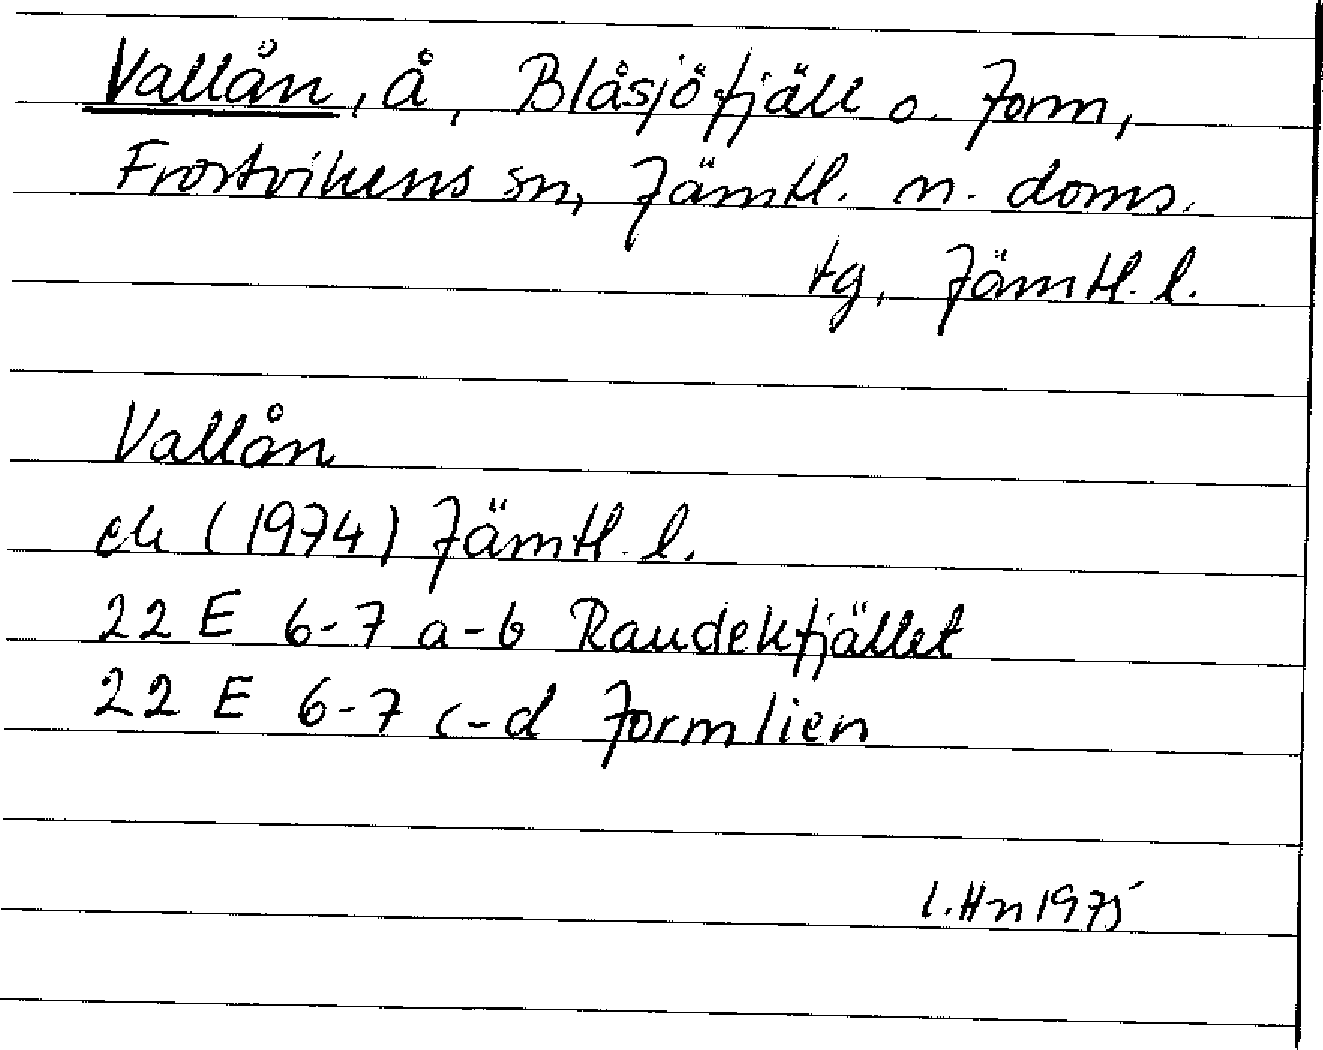 Vallån, å, Blåsjöfjäll o. Jorm,
Frostvikens sn, Jämtl. n. doms.
tg, Jämtl. l.
Vallån
ek (1974) Jämtl. l.
22 E 6-7 a-b Raudekfjället
22 E 6-7 c-d Jormlien
l. Hn 1975